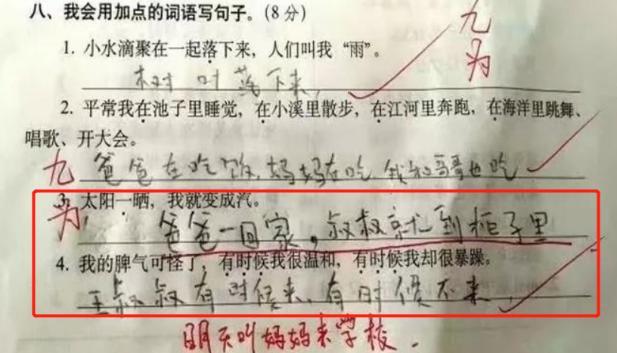 八、我会用加点的词语写句子。(8分)
1. 小水滴聚在一起落下来，人们叫我“雨”。
树叶落下来，
2. 平常我在池子里睡觉，在小溪里散步，在江河里奔跑，在海洋里跳舞、
唱歌、开大会。
爸爸在吃饭，妈妈在吃 我和哥哥也吃
3. 太阳一晒，我就变成汽。
爸爸一回家，叔叔就到柜子里
4. 我的脾气可怪了，有时候我很温和，有时候我却很暴躁。
王叔叔有时候来，有时候不来
明天叫妈妈来学校.